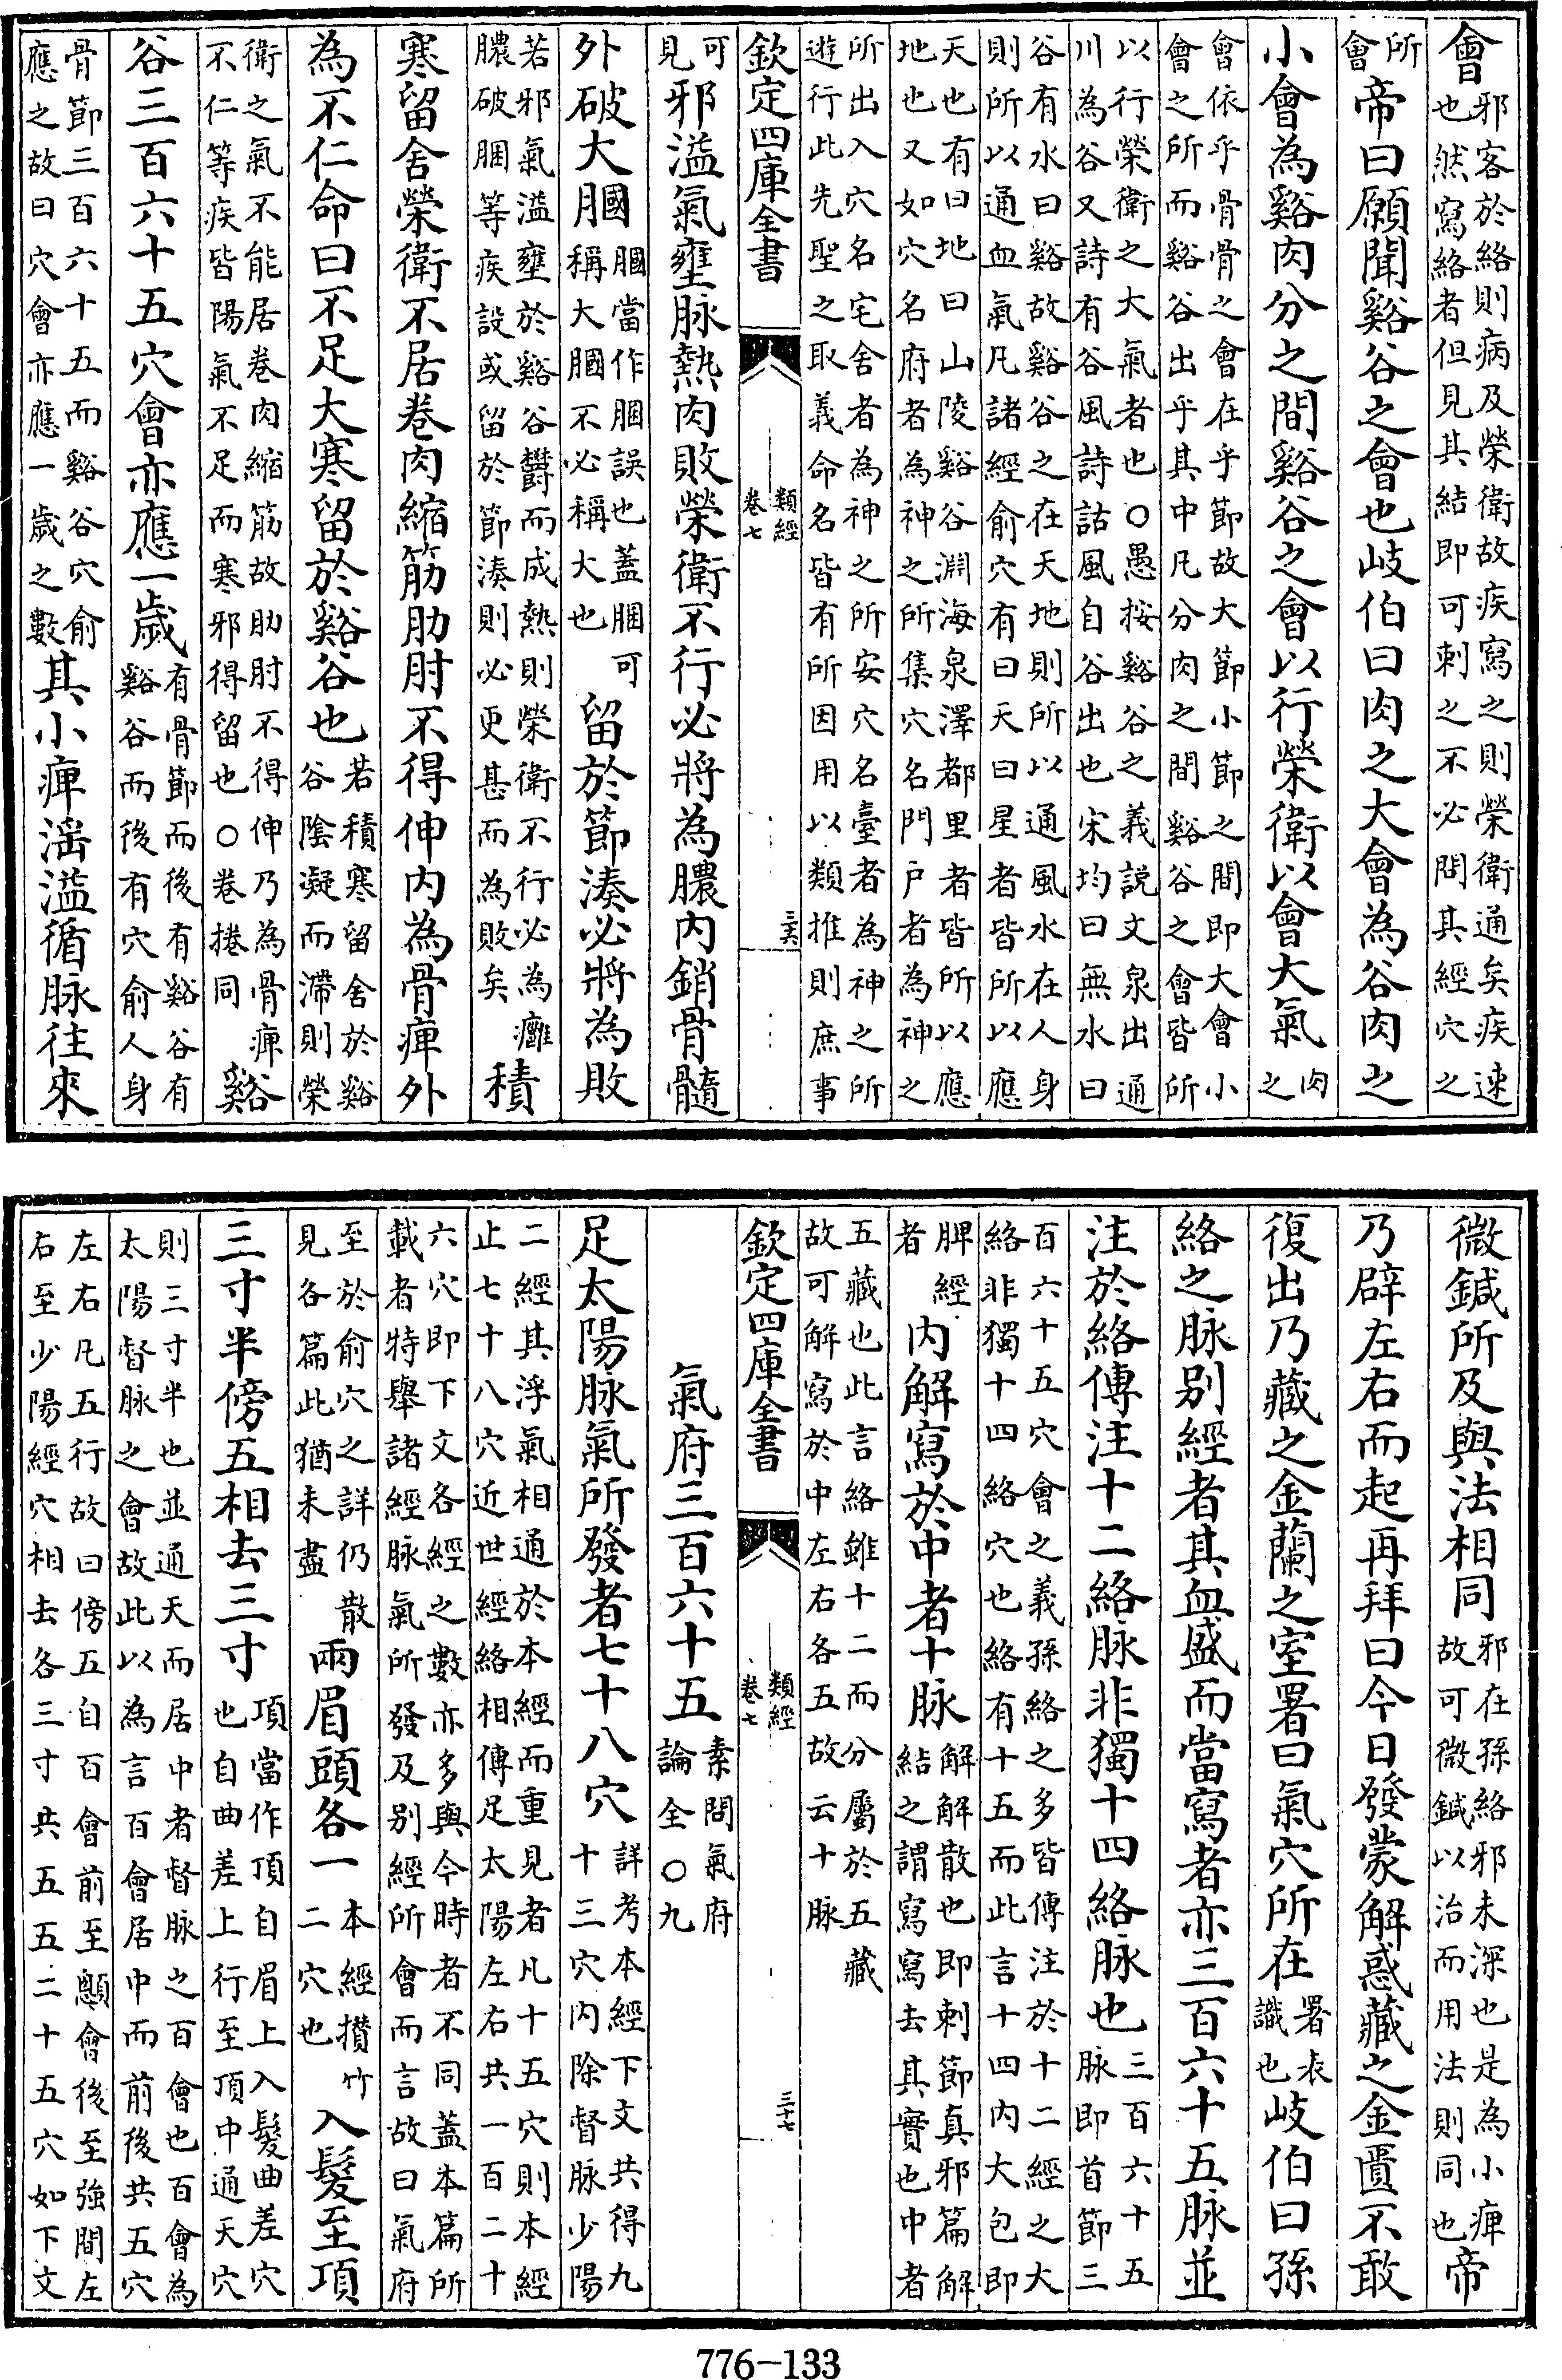 會邪客於絡則病及榮衛故疾寫之則榮衛通矣疾速
也然寫絡者但見其結即可刺之不必問其經穴之
所會帝曰願聞谿谷之會也岐伯曰肉之大會為谷肉之
小會為谿肉分之間谿谷之會以行榮衛以會大氣肉之
會依乎骨骨之會在乎節故大節小節之間即大會小
會之所而谿谷出乎其中凡分肉之間谿谷之會皆所
以行榮衛之大氣者也○愚按谿谷之義説文泉出通
川為谷又詩有谷風詩詁風自谷出也宋均曰無水曰
谷有水曰谿故谿谷之在天地則所以通風水在人身
則所以通血氣凡諸經俞穴有曰天曰星者皆所以應
天也有曰地曰山陵谿谷淵海泉澤都里者皆所以應
地也又如穴名府者為神之所集穴名門户者為神之
所出入穴名宅舍者為神之所安穴名臺者為神之所
遊行此先聖之取義命名皆有所因用以類推則庶事
可見邪溢氣壅脉熱肉敗榮衛不行必將為膿内銷骨髓
外破大膕膕當作䐃誤也蓋䐃可稱大膕不必稱大也留於節湊必將為敗
若邪氣溢壅於谿谷鬱而成熱則榮衛不行必為癰
膿破䐃等疾設或留於節湊則必更甚而為敗矣積
寒留舍榮衛不居卷肉縮筋肋肘不得伸内為骨痺外
為不仁命曰不足大寒留於谿谷也若積寒留舍於谿
谷陰凝而滯則榮
衛之氣不能居卷肉縮筋故肋肘不得伸乃為骨痺
不仁等疾皆陽氣不足而寒邪得留也○卷捲同谿
谷三百六十五穴會亦應一歲有骨節而後有谿谷有
谿谷而後有穴俞人身
骨節三百六十五而谿谷穴俞
應之故曰穴會亦應一歲之數其小痺淫溢循脉往來
欽定四庫全書
類經
卷七
三六
微鍼所及與法相同邪在孫絡邪未深也是為小痺
故可微鍼以治而用法則同也帝
乃辟左右而起再拜曰今日發蒙解惑藏之金匱不敢
復出乃藏之金蘭之室署曰氣穴所在署表識也岐伯曰孫
絡之脉别經者其血盛而當寫者亦三百六十五脉並
注於絡傳注十二絡脉非獨十四絡脉也三百六十五
脉即首節三
百六十五穴會之義孫絡之多皆傳注於十二經之大
絡非獨十四絡穴也絡有十五而此言十四内大包即
脾經者内解寫於中者十脉解解散也即刺節真邪篇解
結之謂寫寫去其實也中者
五藏也此言絡雖十二而分屬於五藏
故可解寫於中左右各五故云十脉
氣府三百六十五素問氣府
論全○九
足太陽脉氣所發者七十八穴詳考本經下文共得九
十三穴内除督脉少陽
二經其浮氣相通於本經而重見者凡十五穴則本經
止七十八穴近世經絡相傳足太陽左右共一百二十
六穴即下文各經之數亦多與今時者不同蓋本篇所
載者特舉諸經脉氣所發及别經所會而言故曰氣府
至於俞穴之詳仍散
見各篇此猶未盡兩眉頭各一本經攢竹
二穴也入髮至項
三寸半傍五相去三寸項當作頂自眉上入髮曲差穴
也自曲差上行至頂中通天穴
則三寸半也並通天而居中者督脉之百會也百會為
太陽督脉之會故此以為言百會居中而前後共五穴
左右凡五行故曰傍五自百會前至顖會後至強間左
右至少陽經穴相去各三寸共五五二十五穴如下文
欽定四庫全書
類經
卷七
三十七
776-133